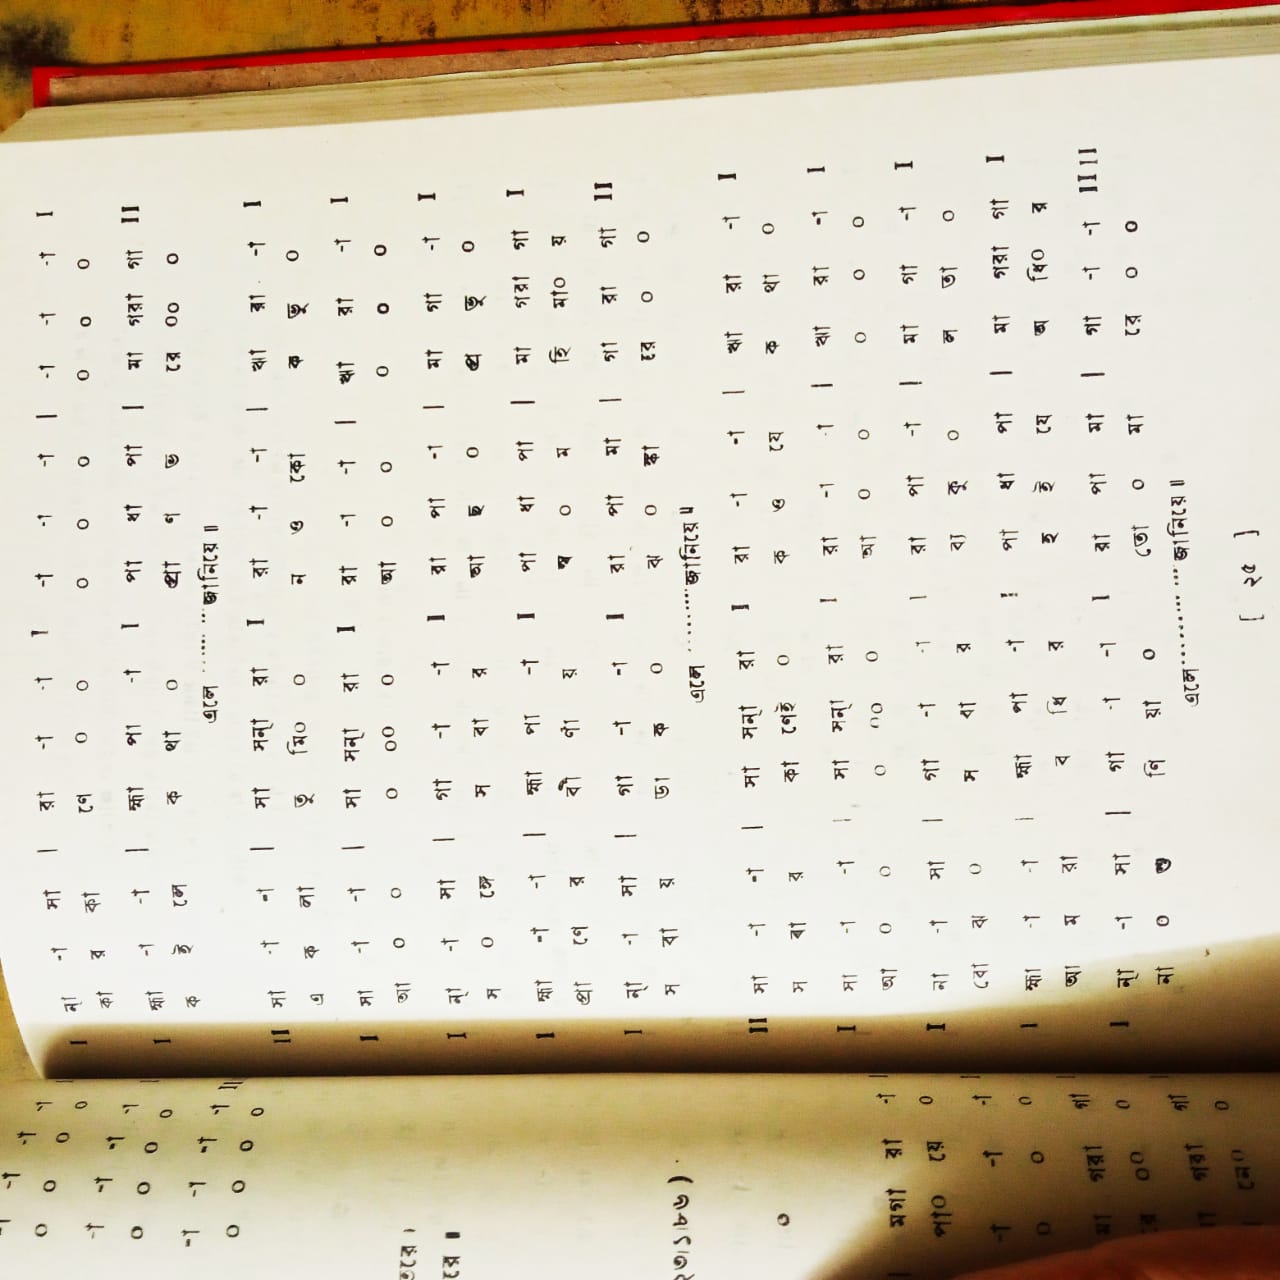 I ন্‌া -া সা | রা -া -া I -া -া -া | -া -া -া I
কা র কা ণে ০ ০ ০ ০ ০ ০ ০ ০
I হ্মা -া -া | হ্মা পা -া I পা ধা পা | মা গরা গা II
ক ই লে ক থা ০ প্রা ণ ভ রে ০০ ০
এলে ...... ...জানিয়ে॥
II সা -া -া | সা সন্‌া রা I রা -া -া | ঋা রা -া I
এ ক লা তু মি০ ০ ন ও কো ক ভু ০
I সা -া -া | সা সন্‌া রা I রা -া -া | ঋা রা -া I
আ ০ ০ ০ ০০ ০ আ ০ ০ ০ ০ ০
I ন্‌া -া সা | গা -া -া I রা পা -া | মা গা -া I
স ০ ঙ্গে স বা র আ ছ ০ প্র ভু ০
I হ্মা -া -া | হ্মা পা -া I পা ধা পা | মা গরা গা I
প্রা ণে র বী ণা য় স্ব ০ ম হি মা০ য়
I ন্‌া -া সা | গা -া -া I রা পা মা | গা রা গা II
স বা য় ডা ক ০ ঝ ০ ঙ্কা রে ০ ০
এলে .........জানিয়ে॥
II সা -া -া | সা সন্‌া রা I রা -া -া | ঋা রা -া I
স বা র কা ণেই ০ ক ও যে ক থা ০
I সা -া -া | সা সন্‌া রা I রা -া -া | ঋা রা -া I
আ ০ ০ ০ ০০ ০ আ ০ ০ ০ ০ ০
I না -া সা | গা -া -া I রা পা -া | মা গা -া I
বো ঝ ০ স বা র ব্য কু ০ ল তা ০
I হ্মা -া -া | হ্মা পা -া I পা ধা পা | মা গরা গা I
আ ম রা ব ধি র হ ই যে অ ধি০ র
I ন্‌া -া সা | গা -া -া I রা পা মা | গা -া -া IIII
না ০ শু ণি য়া ০ তো ০ মা রে ০ ০
এলে......... ...জানিয়ে॥
[ ২৫ ]